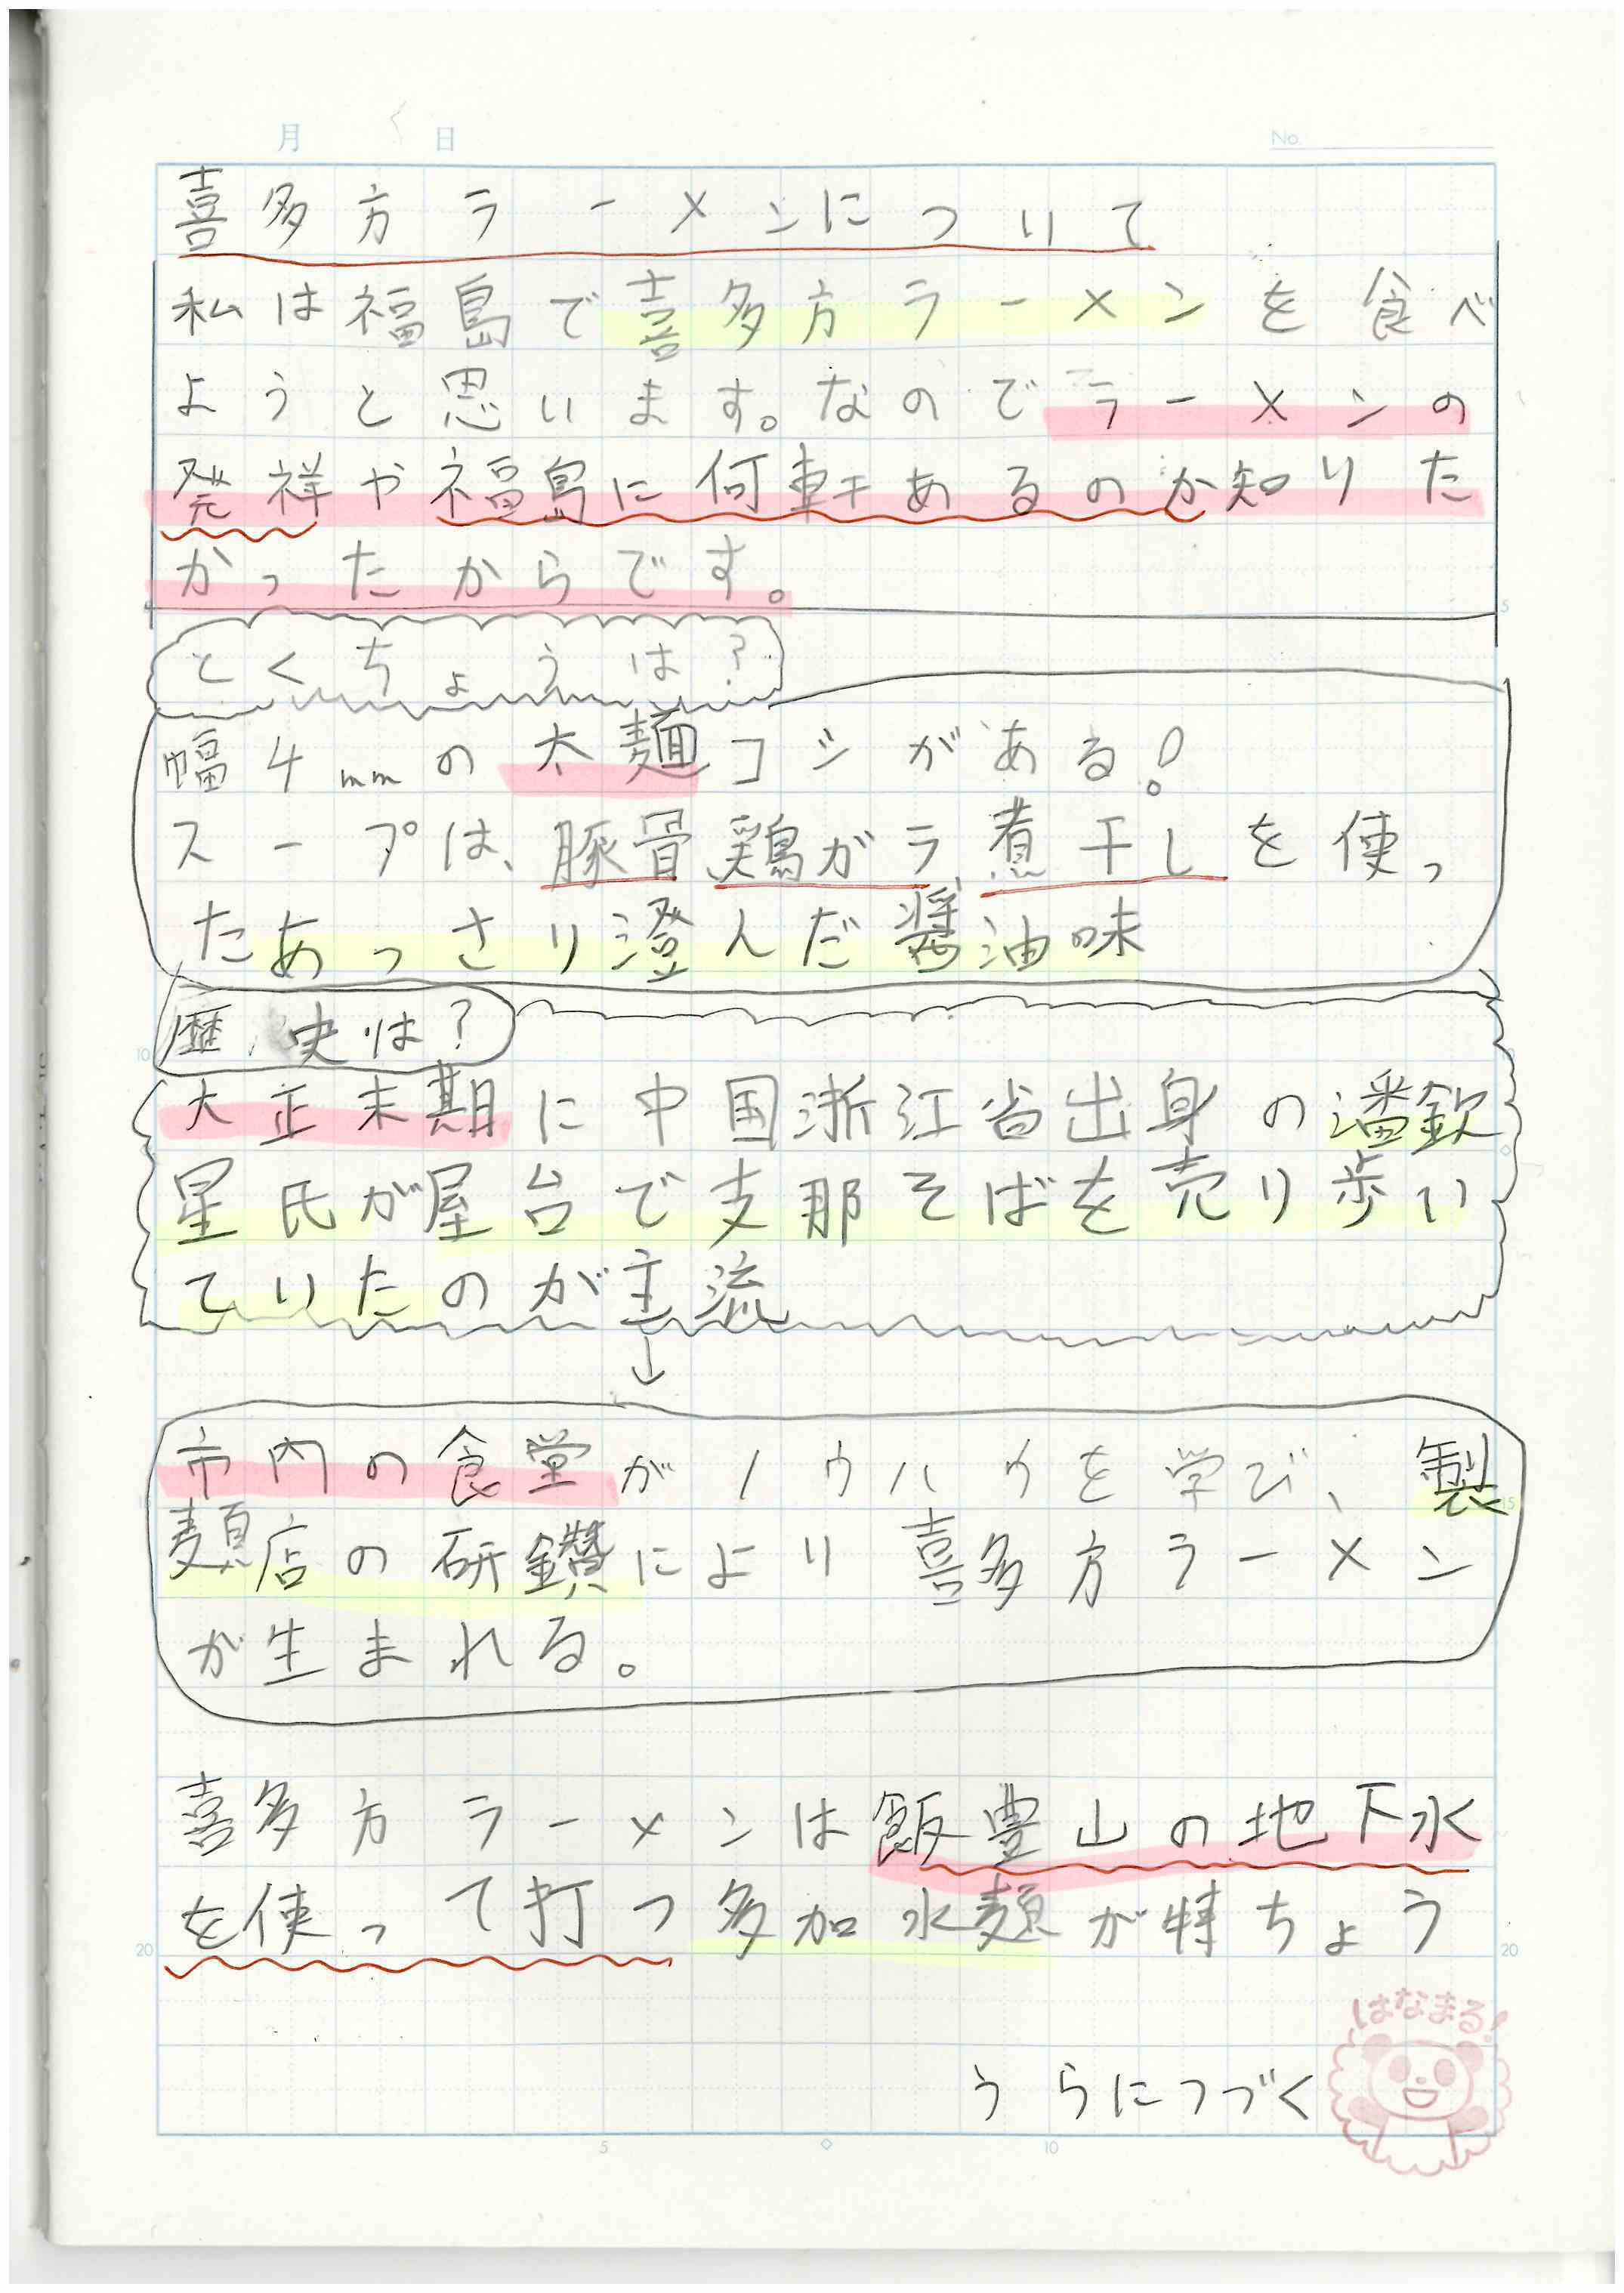 月 日
No.
喜多方ラーメンについて
私は福島で喜多方ラーメンを食べ
ようと思います。なのでラーメンの
発祥や福島に何軒あるのか知りた
かったからです。
5
とくちょうは?
幅4mmの太麺コシがある!
スープは、豚骨、鶏ガラ、煮干しを使っ
たあっさり澄んだ醤油味
歴史は?
10
大正末期に中国浙江省出身の潘欽
星氏が屋台で支那そばを売り歩い
ていたのが主流
↓
市内の食堂がノウハウを学び、製
15
麺店の研鑽により喜多方ラーメン
が生まれる。
喜多方ラーメンは飯豊山の地下水
を使って打つ多加水麺が特ちょう
20 20
はなまる!
うらにつづく
5 10